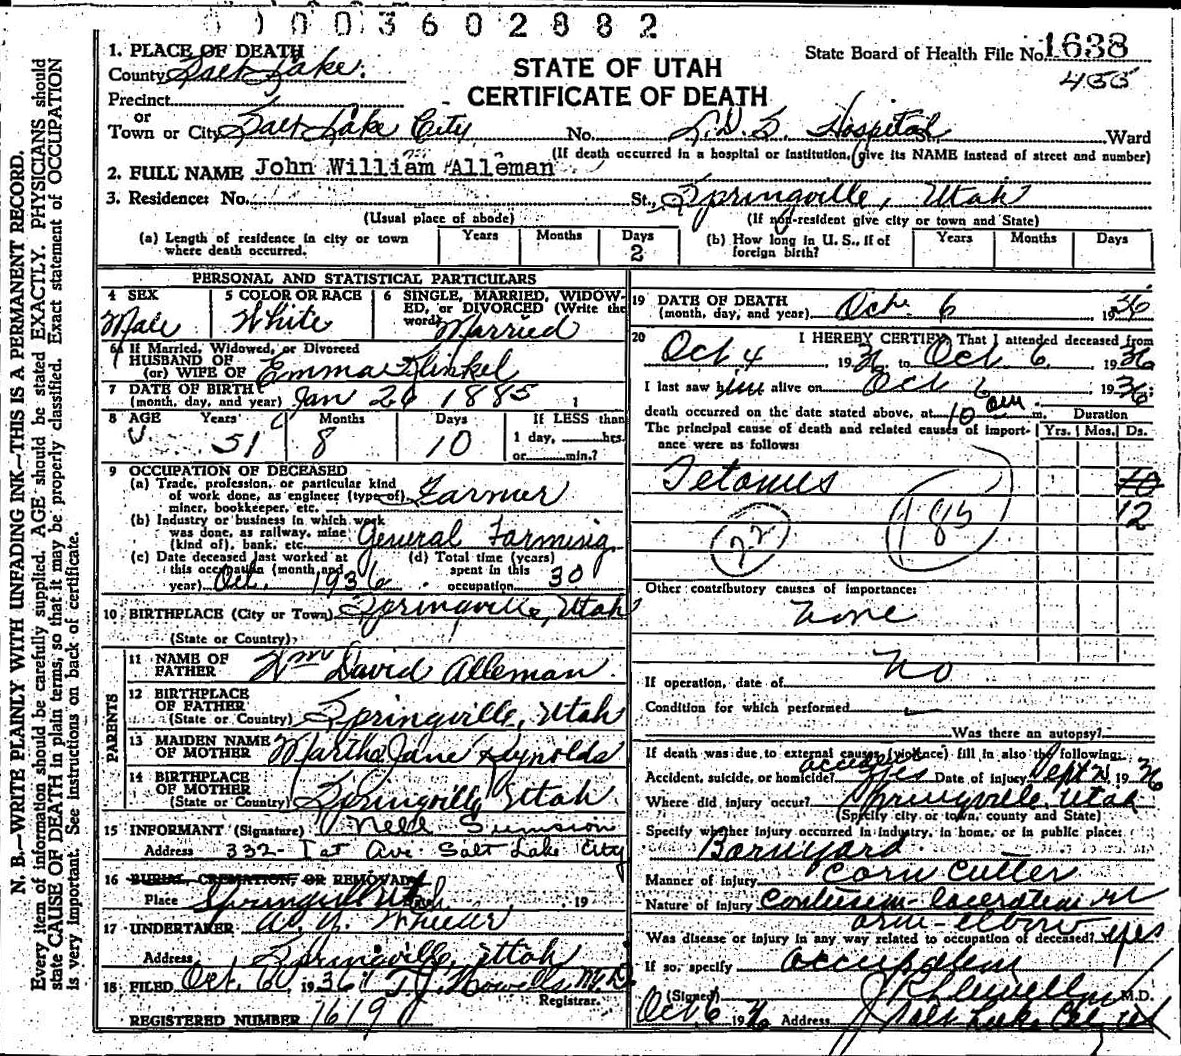 0 0 0 3 6 0 2 8 8 2
1. PLACE OF DEATH
County Salt Lake.
Precinct
or
Town or City Salt Lake City No. L.D.S. Hospital St., Ward
(If death occurred in a hospital or institution, give its NAME instead of street and number)
STATE OF UTAH
CERTIFICATE OF DEATH
State Board of Health File No. 1638
455
2. FULL NAME John William Alleman
3. Residence: No. St., Springville, Utah
(Usual place of abode) (If non-resident give city or town and State)
(a) Length of residence in city or town where death occurred. Years Months Days 2
(b) How long in U. S., if of foreign birth? Years Months Days
PERSONAL AND STATISTICAL PARTICULARS
4 SEX Male
5 COLOR OR RACE White
6 SINGLE, MARRIED, WIDOWED, or DIVORCED (Write the word) Married
6a If Married, Widowed, or Divorced
HUSBAND OF
(or) WIFE OF Emma Klinkel
7 DATE OF BIRTH
(month, day, and year) Jan 26 1885
8 AGE Years 51 Months 8 Days 10 If LESS than
1 day, hrs.
or min.?
9 OCCUPATION OF DECEASED
(a) Trade, profession, or particular kind
of work done, as engineer (type of)
miner, bookkeeper, etc. Farmer
(b) Industry or business in which work
was done, as railway, mine
(kind of), bank, etc. General Farming
(c) Date deceased last worked at
this occupation (month and
year) Oct. 1936
(d) Total time (years)
spent in this
occupation 30
10 BIRTHPLACE (City or Town) Springville, Utah
(State or Country)
PARENTS
11 NAME OF
FATHER Wm David Alleman
12 BIRTHPLACE
OF FATHER
(State or Country) Springville, Utah
13 MAIDEN NAME
OF MOTHER Martha Jane Reynolds
14 BIRTHPLACE
OF MOTHER
(State or Country) Springville, Utah
15 INFORMANT (Signature) Nell Sumsion
Address 332- 1st Ave. Salt Lake City
16 BURIAL, CREMATION, OR REMOVAL
Place Springville Utah , 19
17 UNDERTAKER A. Y. Wheeler
Address Springville, Utah
18 FILED Oct. 6 1936 T. J. Howells M.D.
Registrar.
REGISTERED NUMBER 1619
19 DATE OF DEATH
(month, day, and year) Oct. 6 1936
20 I HEREBY CERTIFY, That I attended deceased from
Oct 4 1936 to Oct 6 1936
I last saw him alive on Oct 6 1936;
death occurred on the date stated above, at 10 am. m. Duration
The principal cause of death and related causes of importance were as follows: Yrs. Mos. Ds.
Tetanus 10
12
22 185
Other contributory causes of importance:
none
If operation, date of no
Condition for which performed
Was there an autopsy?
If death was due to external causes (violence) fill in also the following:
accident
Accident, suicide, or homicide? yes Date of injury Sept 2 1936
Where did injury occur? Springville, Utah
(Specify city or town, county and State)
Specify whether injury occurred in industry, in home, or in public place:
Barnyard
Manner of injury corn cutter
Nature of injury Contusion- laceration rt
arm- elbow
Was disease or injury in any way related to occupation of deceased? yes
If so, specify occupation
(Signed) M.D.
Oct 6 1936 Address Salt Lake City Ut
N. B.—WRITE PLAINLY WITH UNFADING INK—THIS IS A PERMANENT RECORD.
Every item of information should be carefully supplied. AGE should be stated EXACTLY. PHYSICIANS should
state CAUSE OF DEATH in plain terms, so that it may be properly classified. Exact statement of OCCUPATION
is very important. See instructions on back of certificate.